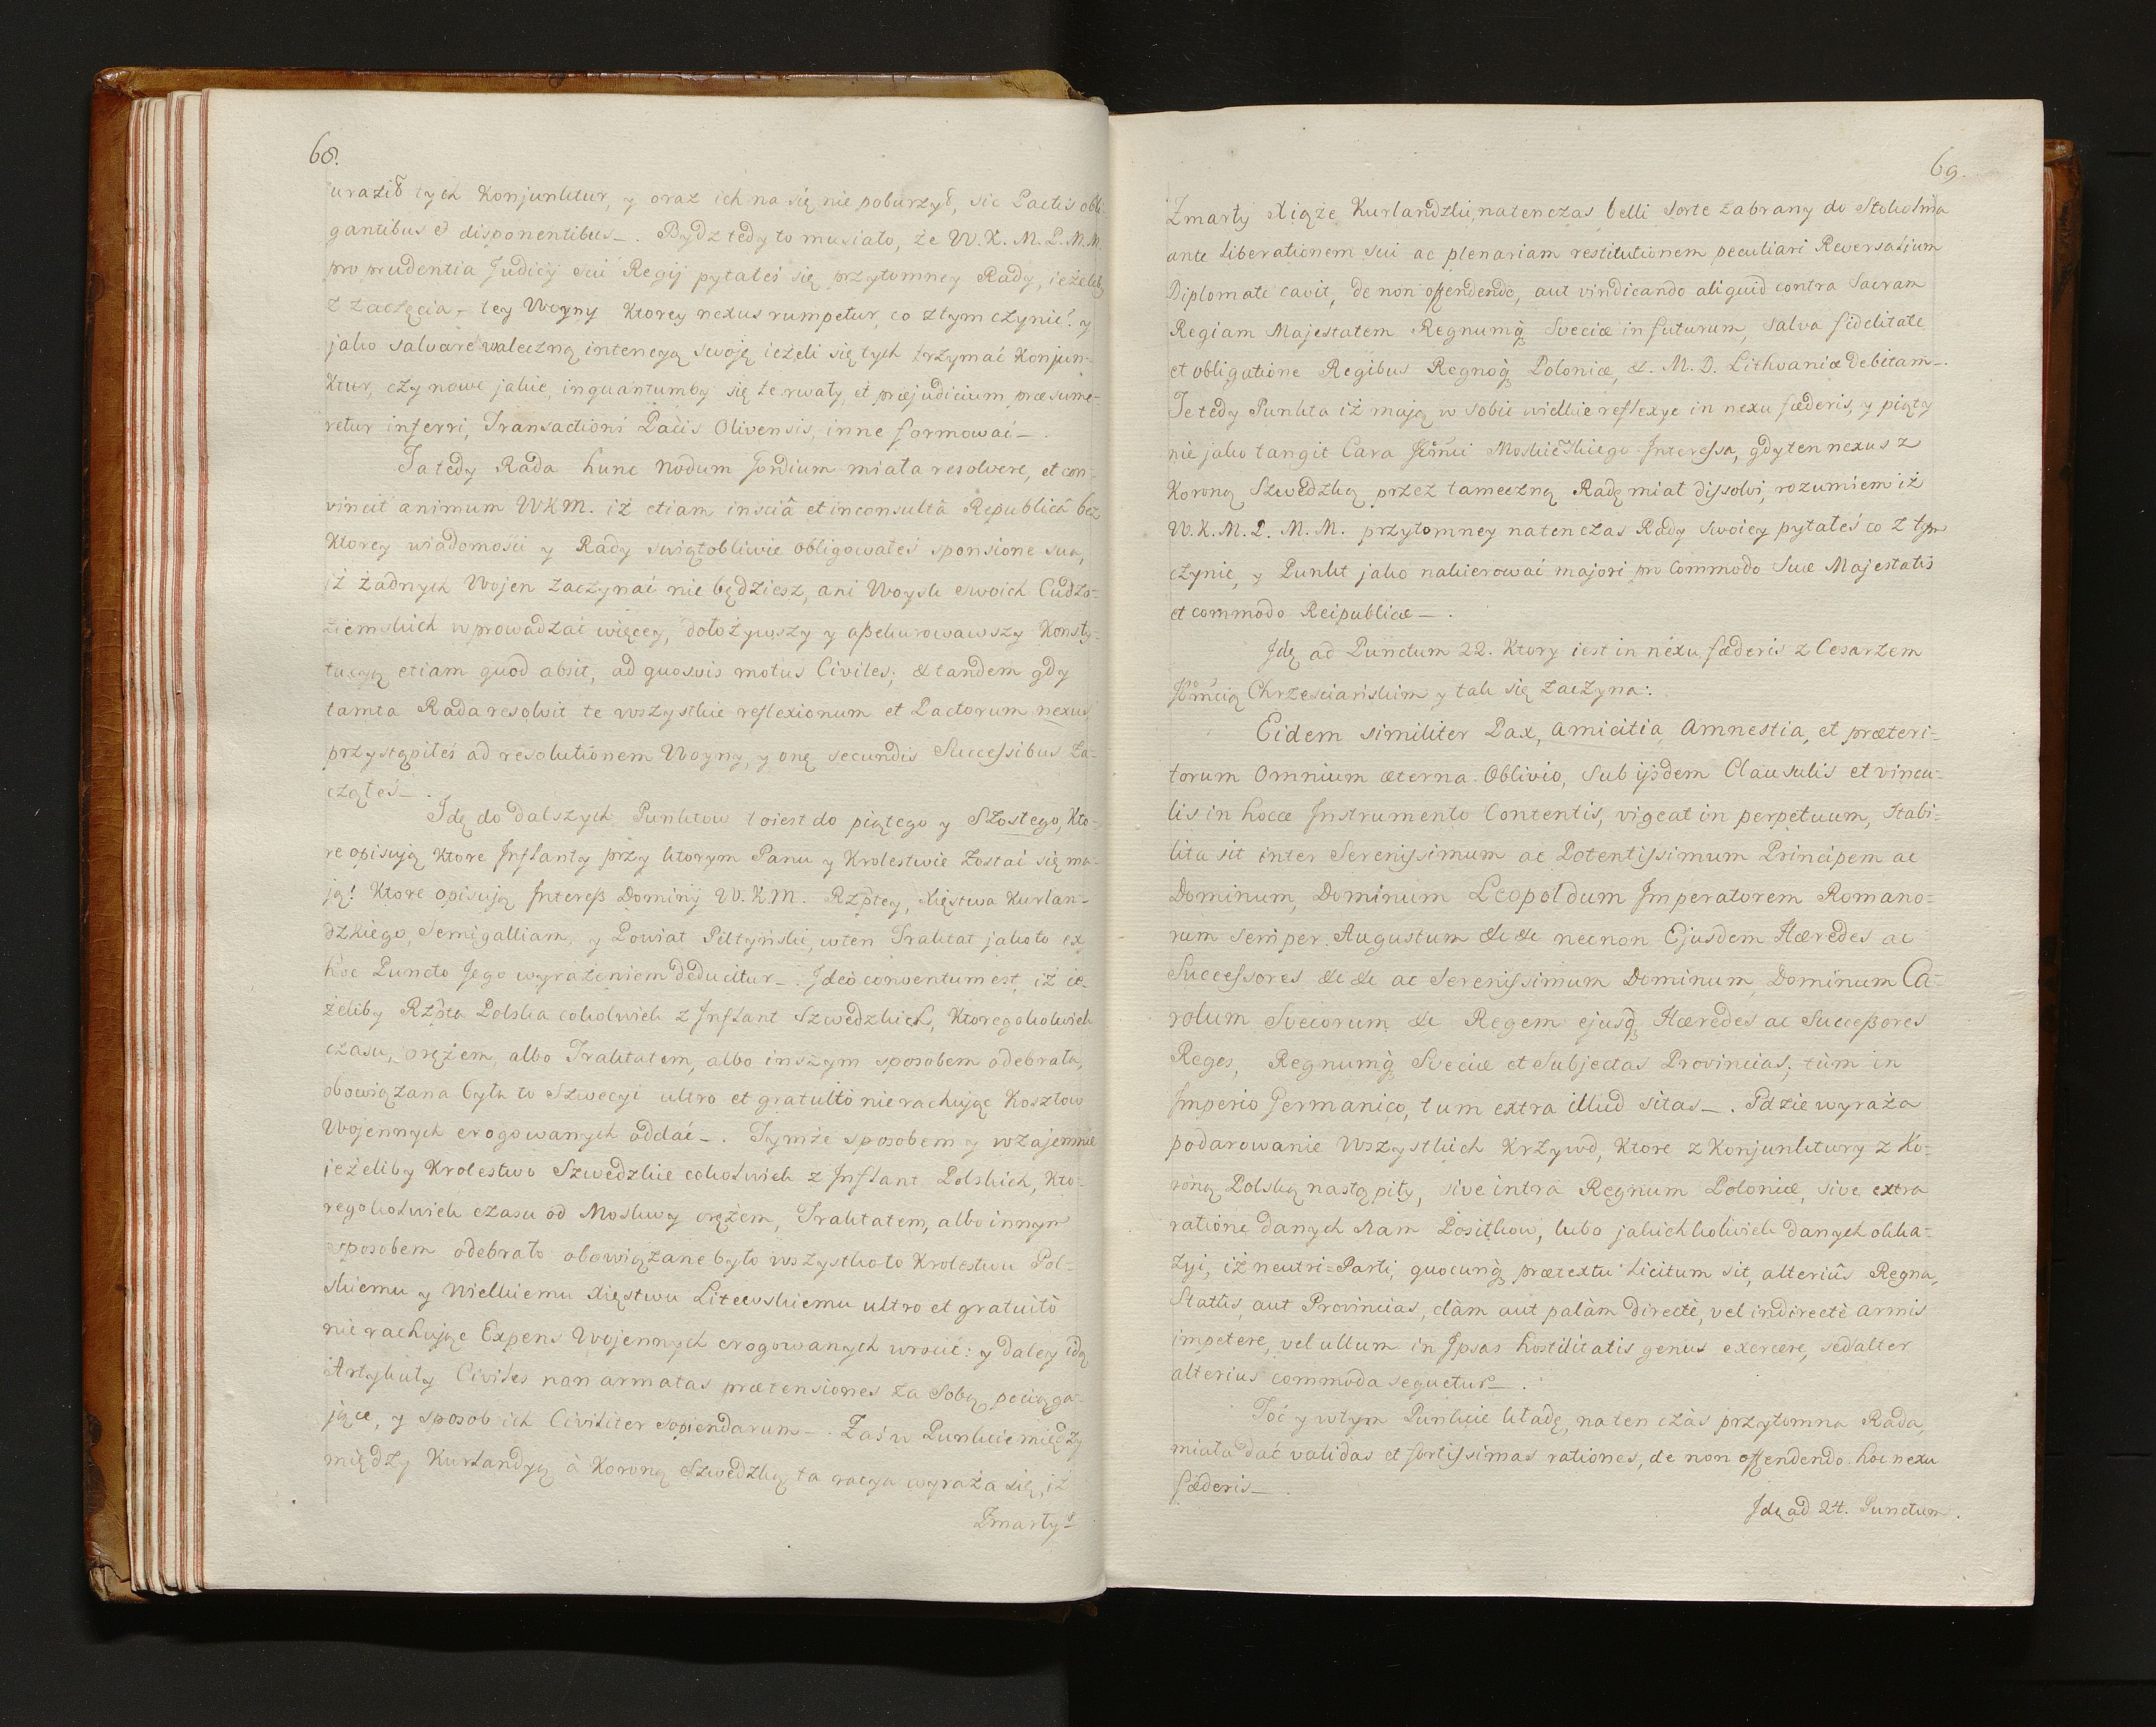 68.
uraził tych Konjunktur, y oraz ich na się nie poburzył, sic Pactis obli-
gantibus et disponentibus_. Bydz tedy to musiało, że W. K. M. P. M. M.
pro prudentia Judicij sui Regij pytałeś się przytomney Rady, ieżeliby
z zaczęcia tey Woyny Ktorey nexus rumpetur, co z tym czynić? y
jako salvare waleczną intencyą swoję ieżeli się tych trzymać Konjun-
ktur, czy nowe jakie, inquantumby się te rwały, et præjudicium præsume-
retur inferri, Transactioni Pacis Olivensis, inne formować_.
Ta tedy Rada hunc Nodum Gordium miała resolvere, et con-
vincit animum WKM. iż etiam insciâ et inconsultâ Republicâ bez
Ktorey wiadomości y Rady swiątobliwie obligowałeś sponsione sua,
iż żadnych Wojen zaczynać nie będziesz, ani Woysk swoich Cudzo-
ziemskich wprowadzać więcey, dołożywszy y aßekurowawszy Konsty-
tucyą etiam quod absit, ad quosvis motus Civiles; & tandem gdy
tamta Rada resolvit te wszystkie reflexionum et Pactorum nexus
przystąpiłeś ad resolutionem Woyny, y onę secundis Successibus za-
cząłeś_.
Idę do dalszych Punktow to iest do piątego y Szostego, Kto-
re opisują Ktore Inflanty przy ktorym Panu y Krolestwie zostać się ma-
ją! Ktore opisują Intereß Dominij W. K. M. Rzptey, Xięstwa Kurlan-
dzkiego, Semigalliam, y Powiat Piltyński, w ten Traktat jako to ex
hoc Puncto Jego wyrażeniem deducitur_. Ideo conventum est, iż ie-
żeliby Rzpta Polska cokolwiek z Inflant Szwedzkich, Ktoregokolwiek
czasu, orężem, albo Traktatem, albo inszym sposobem odebrała,
obowiązana była to Szwecyi ultro et gratuitò nie rachując Kosztow
Wojennych erogowanych oddać_. Tymże sposobem y wzajemnie
jeżeliby Krolestwo Szwedzkie cokolwiek z Inflant Polskich, Kto-
regokolwiek czasu od Moskwy orężem, Traktatem, albo innym
sposobem odebrało obowiązane było wszystko to Krolestwu Pol-
skiemu y Wielkiemu Xięstwu Litewskiemu ultro et gratuitò
nie rachując Expens Wojennych erogowanych wrocić: y daley idą
Artykuły Civiles non armatas prætensiones za Sobą pociąga-
jące, y sposob ich Civiliter sopiendarum_. Zaś w Punkcie między
między Kurlandyą à Koroną Szwedzką ta racya wyraża się, iż
Zmarły
69.
Zmarły Xiąże Kurlandzki, natenczas belli sorte zabrany do Stokolma
ante liberationem sui ac plenariam restitutionem peculiari Reversalium
Diplomate cavit, de non offendendo, aut vindicando aliquid contra Sacram
Regiam Majestatem Regnumq; Sveciæ in futurum, salva fidelitate
et obligatione Regibus Regnoq; Poloniæ, &. M. D. Lithvaniæ debitam_.
Te tedy Punkta iż mają w sobie wielkie reflexye in nexu fœderis, y piąty
nie jako tangit Cara Jkmci Moskiewskiego Interessa, gdy ten nexus z
Koroną Szwedzką przez tameczną Radę miał dissolvi, rozumiem iż
W. K. M. P. M. M. przytomney natenczas Rady swoiey pytałeś co z tym
czynić, y Punkt jako nakierować majori pro Commodo Suæ Majestatis
et commodo Reipublicæ_.
Idę ad Punctum 22. Ktory iest in nexu fœderis z Cesarzem
Jkmcią Chrzesciańskim y tak się zaczyna:
Eidem similiter Pax, amicitia, Amnestia, et præteri-
torum omnium æterna Oblivio, sub ijsdem Clausulis et vincu-
lis in hocce Instrumento Contentis, vigeat in perpetuum, Stabi-
lita sit inter Serenissimum ac Potentissimum Principem ac
Dominum, Dominum Leopoldum Imperatorem Romano-
rum semper Augustum &c &c necnon Ejusdem Hæredes ac
Successores &c &c ac Serenissimum Dominum, Dominum Ca-
rolum Svecorum &c Regem ejusq; Hæredes ac Succeßores
Reges, Regnumq; Sveciæ et Subjectas Provincias; tùm in
Imperio Germanico, tum extra illud sitas_. Gdzie wyraża
podarowanie Wszystkich Krzywd, Ktore z Konjunktury z Ko-
roną Polską nastąpiły, sive intra Regnum Poloniæ, sive extra
ratione danych nam Posiłkow, lubo jakichkolwiek danych okka-
zyi, iż neutri Parti, quocunq; prætextu licitum sit, alteriûs Regna,
Statûs, aut Provincias, clàm aut palàm directè, vel indirectè armis
impetere, vel ullum in Ipsas hostilitatis genus exercere, sed alter
alterius commoda sequetur_.
Toć y w tym Punkcie kładę, na ten czas przytomna Rada,
miała dać validas et fortissimas rationes, de non offendendo hoc nexu
fœderis_.
Idę ad 24. Punctum.